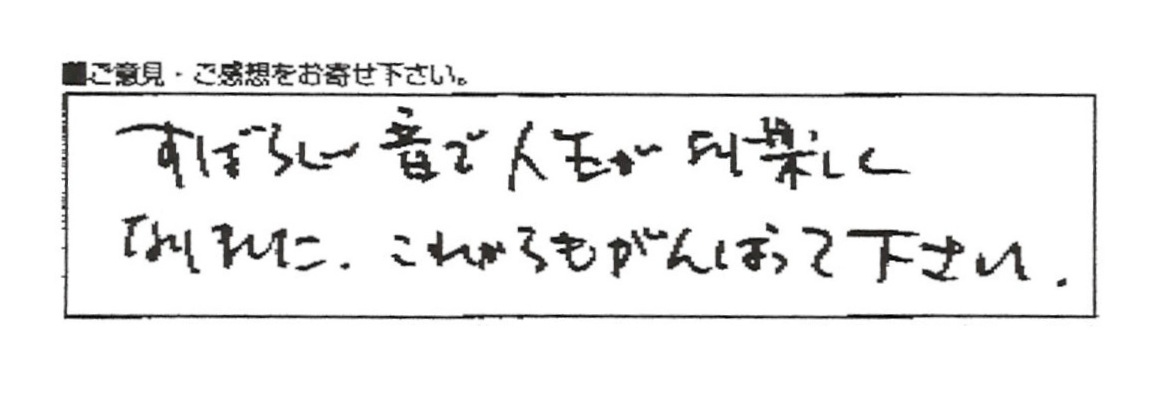 ■ご意見・ご感想をお寄せ下さい。
すばらしい音で人生が 楽しく
なりました。これからもがんばって下さい.